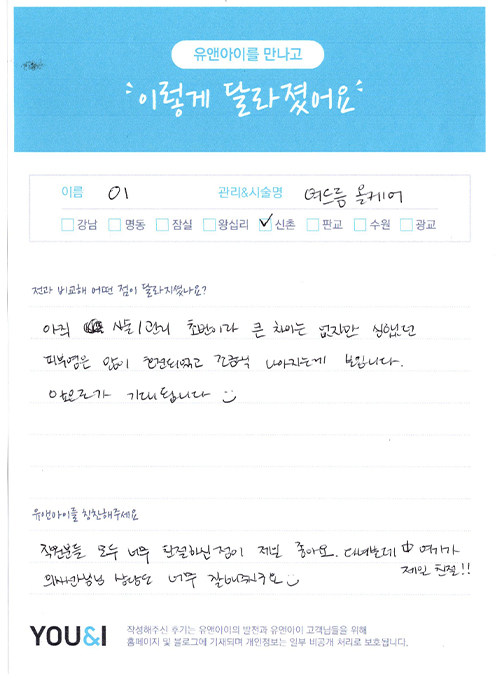 유앤아이를 만나고
이렇게 달라졌어요
이름 이 관리&시술명 여드름 올케어
강남 명동 잠실 왕십리 신촌 판교 수원 광교
전과 비교해 어떤 점이 달라지셨나요?
아직 시술/관리 초반이라 큰 차이는 없지만 심했던
피부염은 많이 호전되었고 조금씩 나아지는게 보입니다.
앞으로가 기대됩니다
유앤아이를 칭찬해주세요
직원분들 모두 너무 친절하신점이 제일 좋아요. 다녀본데 中 여기가
제일 친절!!
의사선생님 상담도 너무 잘해주시구요
YOU&I
작성해주신 후기는 유앤아이의 발전과 유앤아이 고객님들을 위해
홈페이지 및 블로그에 기재되며 개인정보는 일부 비공개 처리로 보호됩니다.